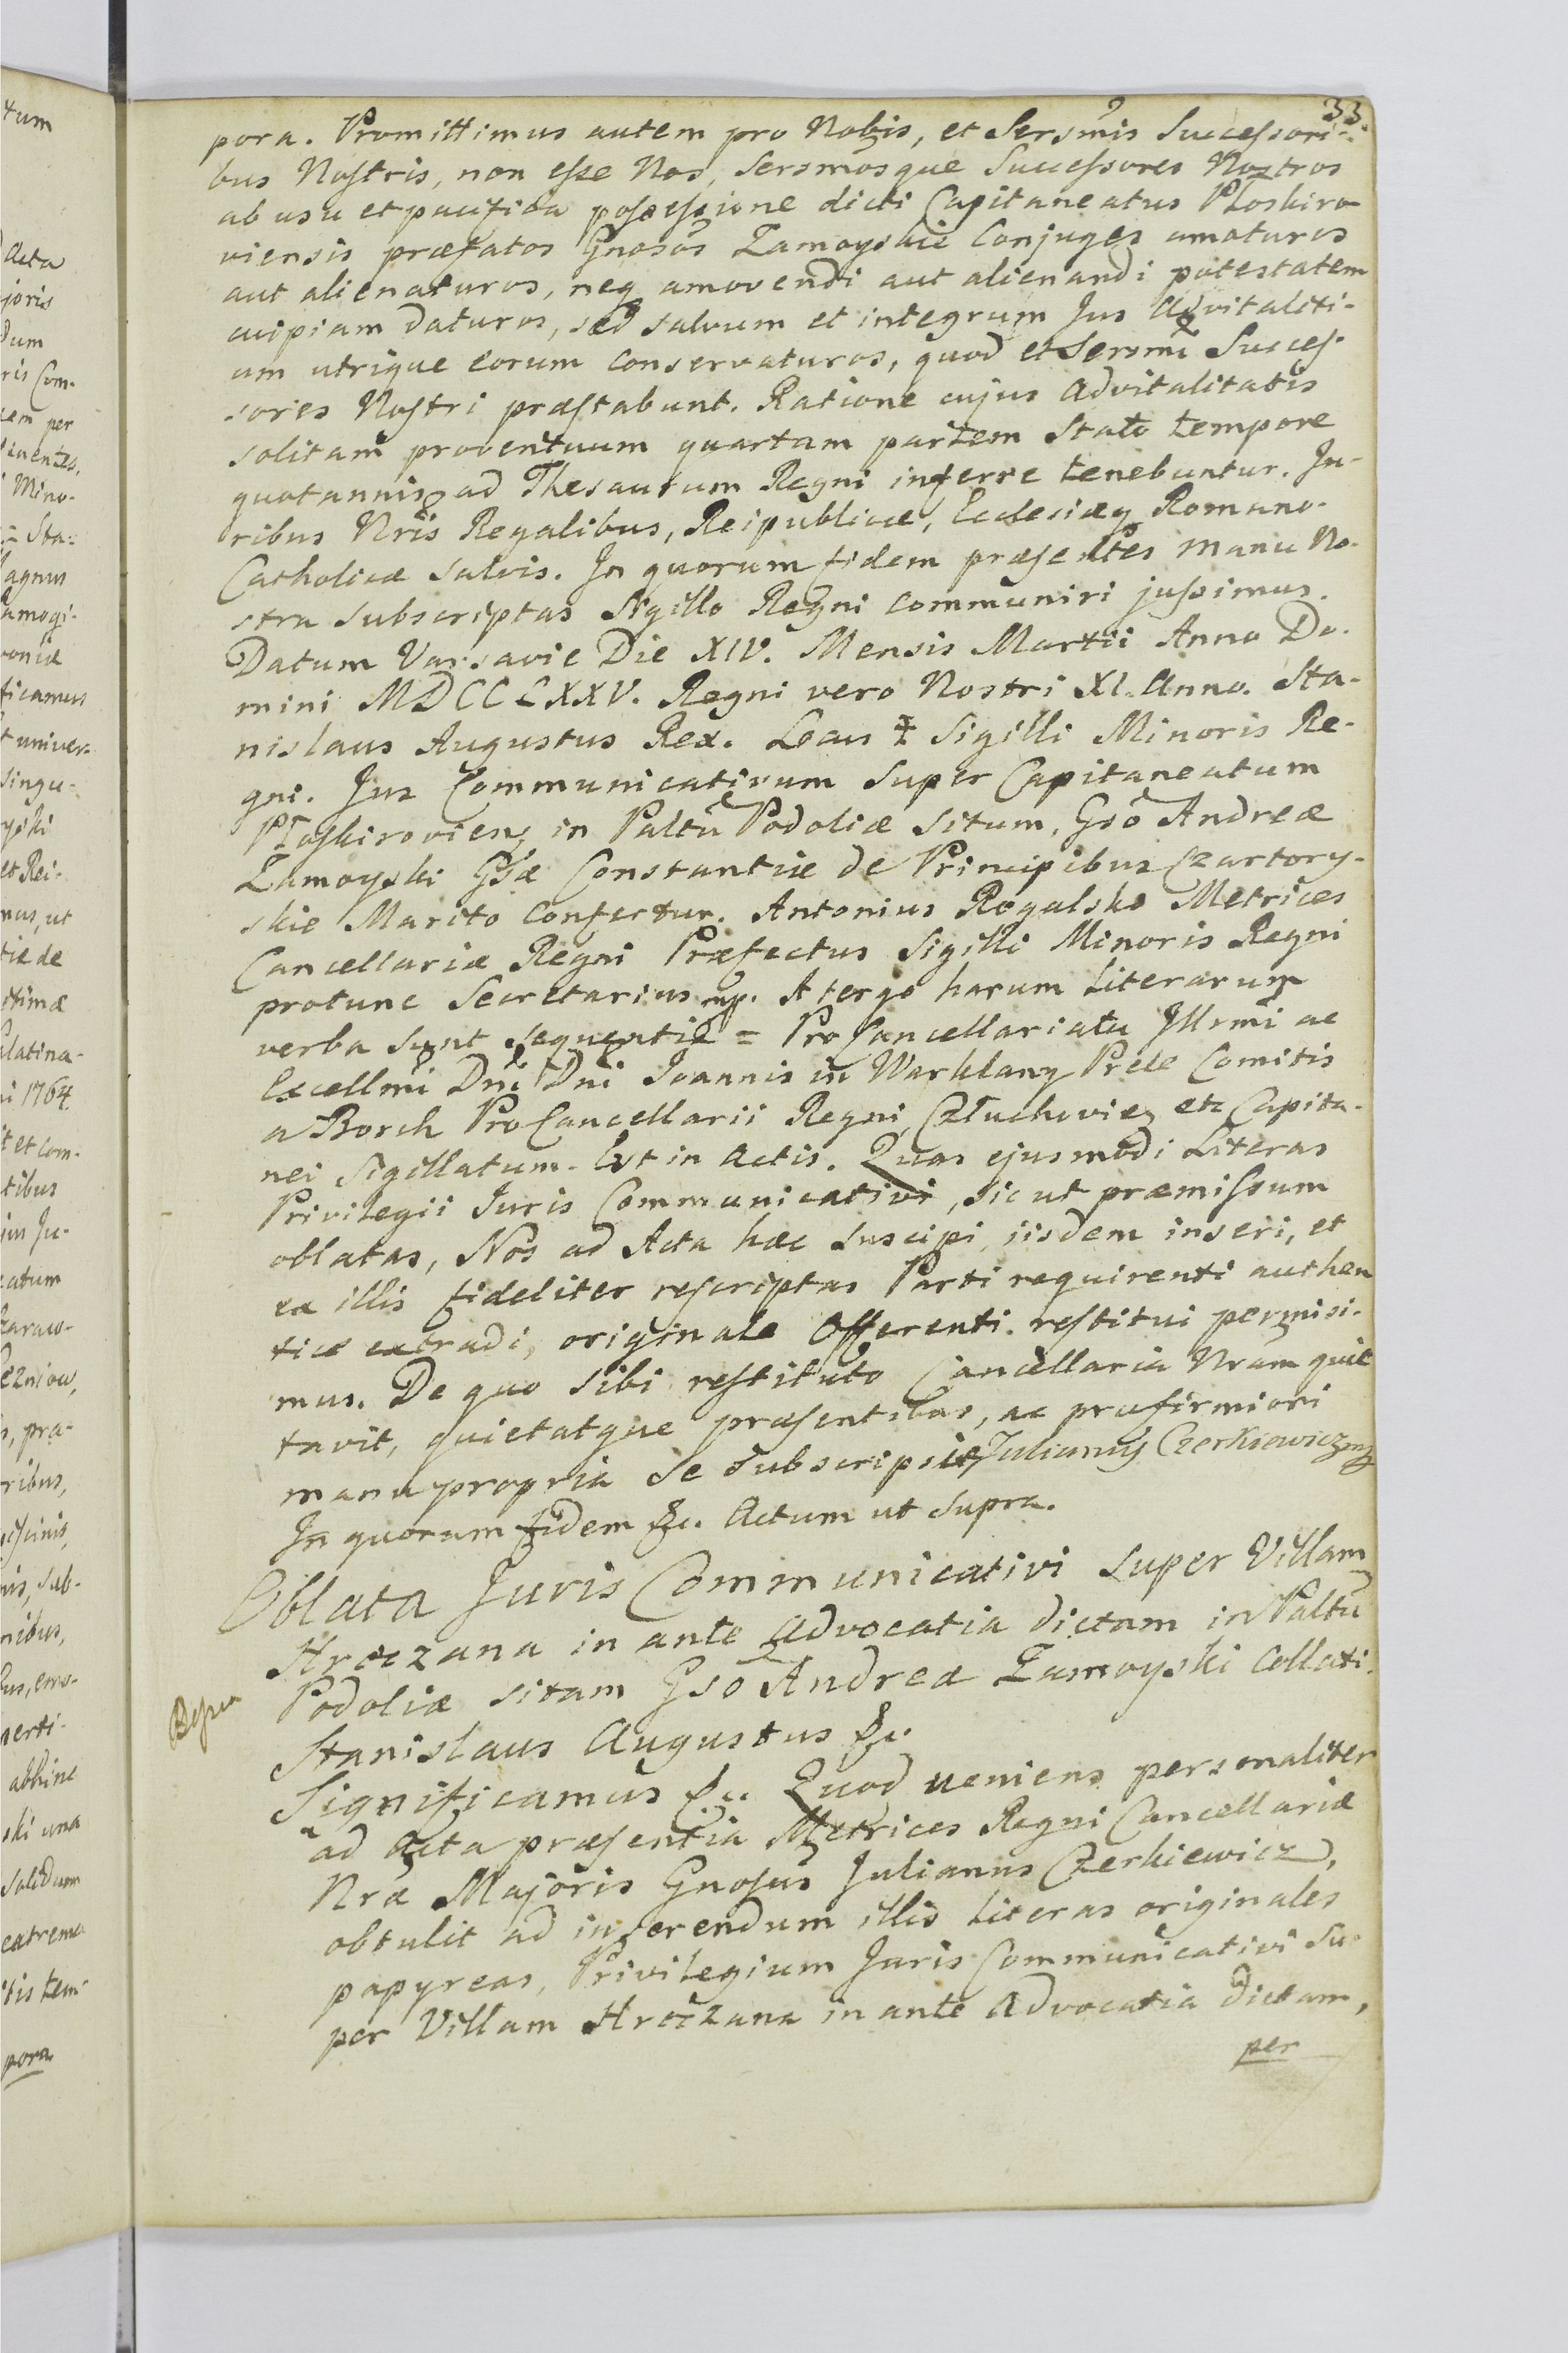 33.
pora. Promittimus autem pro Nobis, et Sersmis Successori-
bus Nostris, non esse Nos, Sersmosque Successores Nostros
ab usu et pacifica possessione dicti Capitaneatus Płoskiro
viensis præfatos Gnosos Zamoyskie Conjuges amoturos
aut alienaturos, neq amovendi aut alienandi potestatem
cuipiam daturos, sed salvum et integrum Jus Advitaliti-
um utrique eorum conservaturos, quod et Sersmi Succes-
sores Nostri præstabunt. Ratione cujus Advitalitatis
solitam proventuum quartam partem Stato tempore
quotannis ad Thesaurum Regni inferre tenebuntur. Ju-
ribus Nris Regalibus, Reipublicæ, Ecclesiæq Romano-
Catholicæ salvis. In quorum fidem præsentes manu No-
stra subscriptas Sigillo Regni communiri jussimus.
Datum Varsavie Die XIV. Mensis Martii Anno Do-
mini MDCCLXXV. Regni vero Nostri XI. Anno. Sta-
nislaus Augustus Rex. Locus ‡ Sigilli Minoris Re-
gni. Jus Communicativum super Capitaneatum
Płoskirovien, in Paltu Podoliæ situm, Gso Andreæ
Zamoyski Gsæ Constantiæ de Principibus Czartory-
skie Marito Confertur. Antonius Rogalsko Metrices
Cancellariæ Regni Præfectus Sigilli Minoris Regni
protunc Secretarius mp. A tergo harum Literarum
verba sunt sequentia = Pro Cancellariatu Illsmi ac
Excellmi Dni Dni Joannis in Warklany Prele Comitis
a Borch Pro Cancellarii Regni, Człuchovien etc Capita-
nei Sigillatum. Est in Actis. Quas ejusmodi Literas
Privilegii Juris Communicativi, sic ut præmissum
oblatas, Nos ad Acta hæc suscipi, iisdem inseri, et
ex illis fideliter rescriptas Parti requirenti authen
tice extradi, originale Offerenti restitui permisi-
mus. De quo sibi restituto Cancellaria Nram quie
tavit, quietatque præsentibus, ac pro firmiori
manu propria se subscripsit Julianus Czerkiewicz mp
In quorum fidem &c. Actum ut supra.
Oblata Juris Communicativi super Villam
Hreczana in ante Advocatia dictam in Paltu
Podoliæ sitam Gso Andreæ Zamoyski Collati.
Stanislaus Augustus &c.
Significamus &c. Quod veniens personaliter
ad Acta præsentia Metrices Regni Cancellariæ
Nræ Majoris Gnosus Julianus Czerkiewicz,
obtulit ad inserendum illis Literas originales
papyreas, Privilegium Juris Communicativi Su-
per Villam Hreczana in ante Advocatia dictam,
per